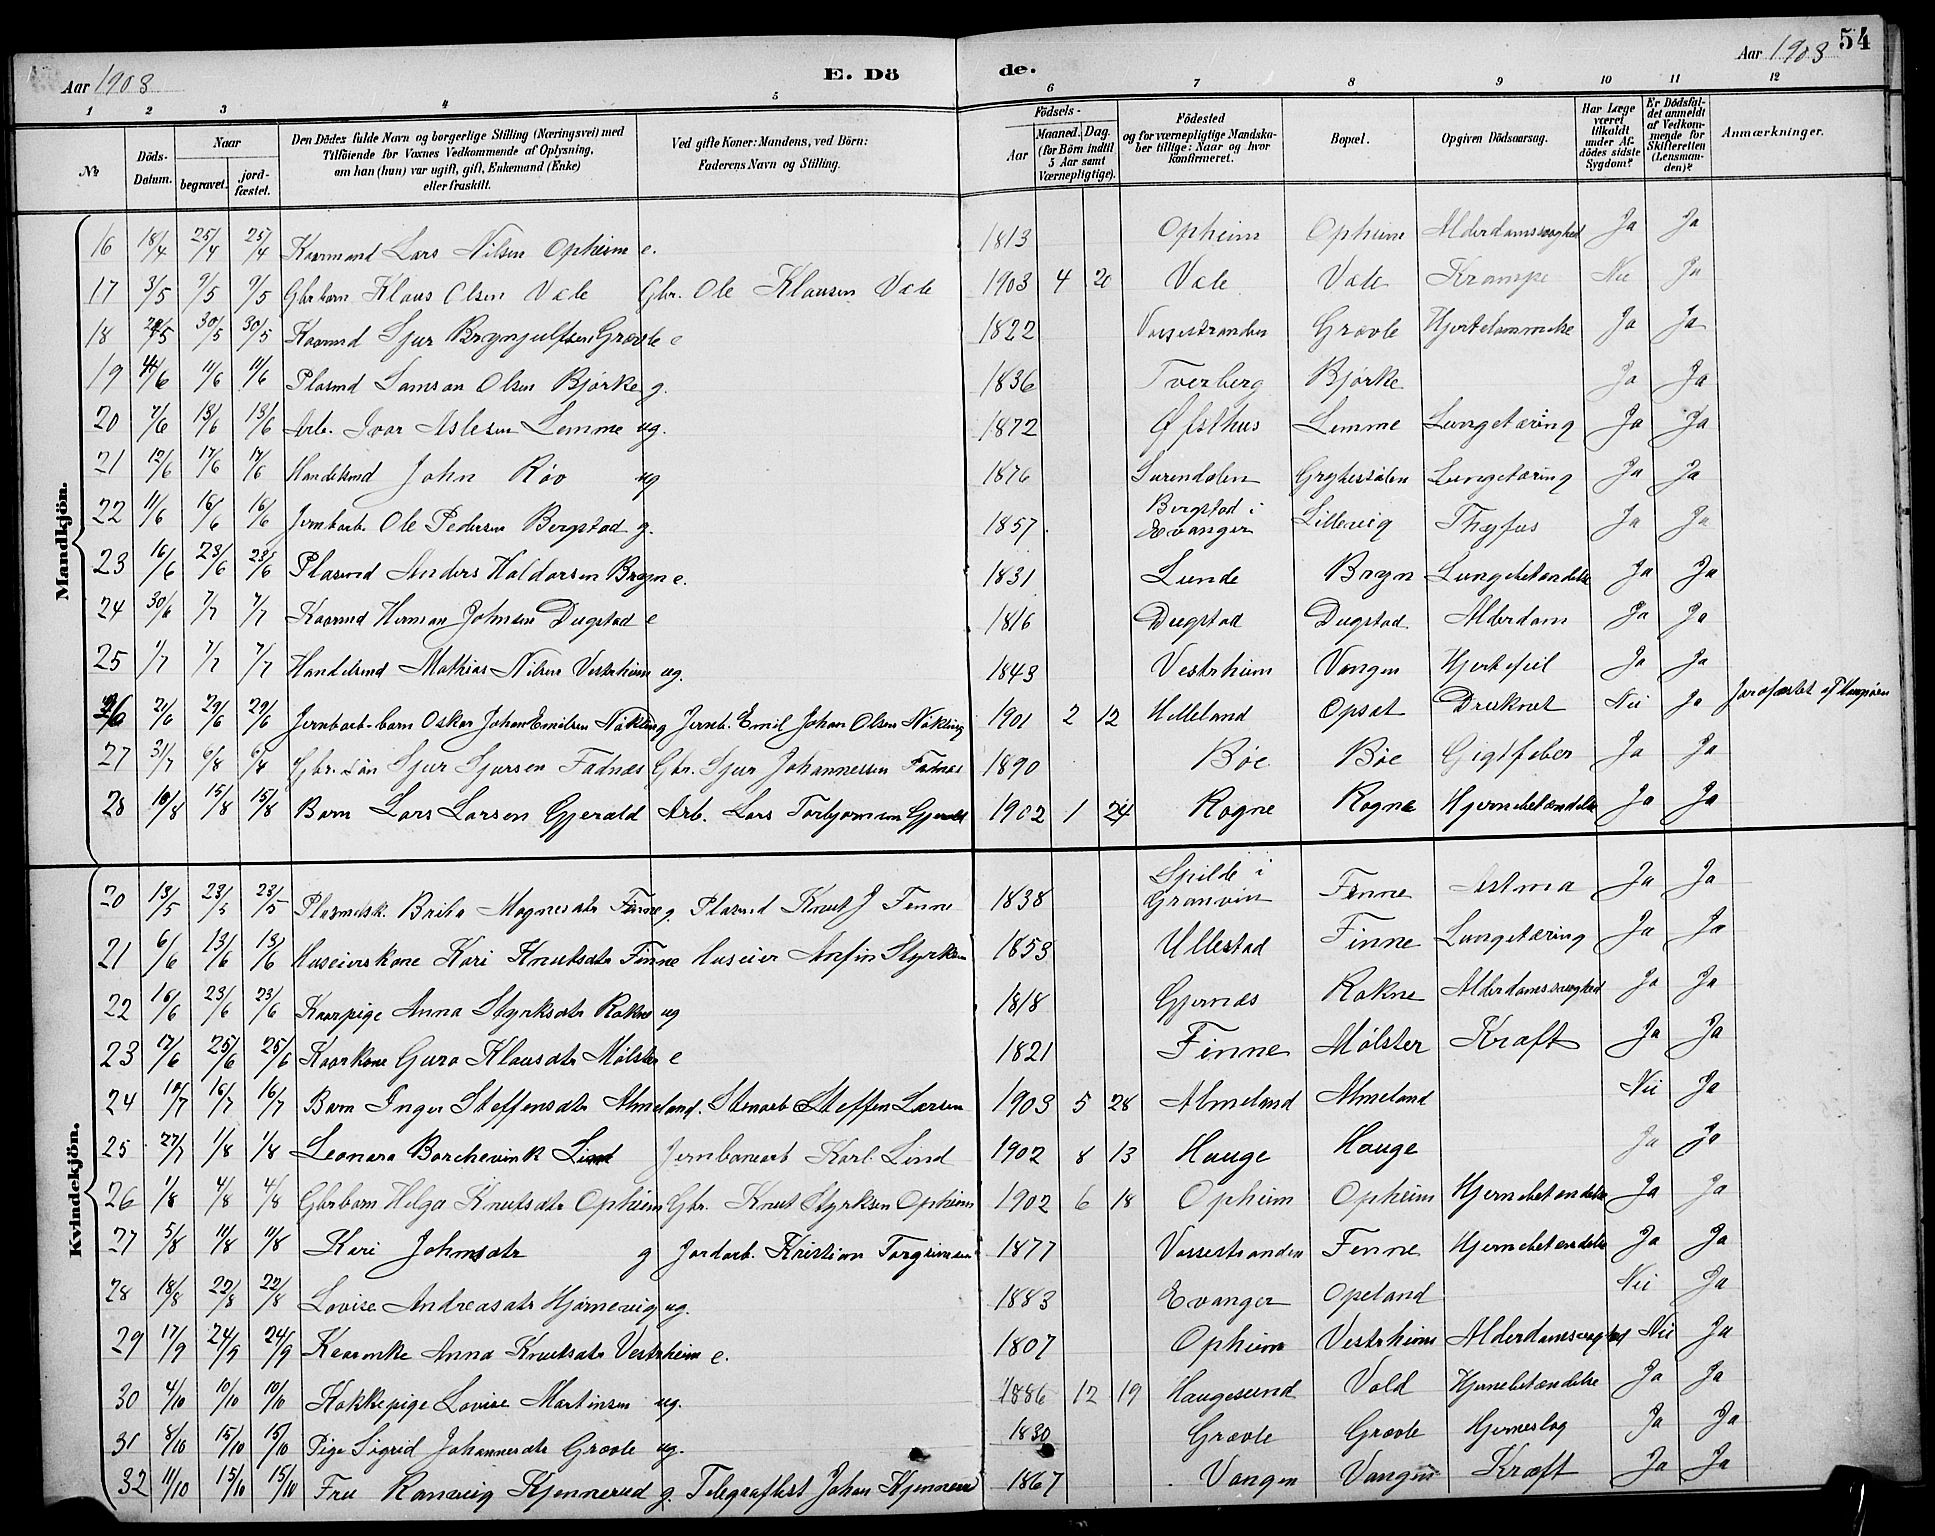 Aar 1903 E. Dö de. Aar 1903 54
1 2 3 4 5 6 7 8 9 10 11 12
No
Döds-Datum.
Naar
begravet. jordfæstet.
Den Dödes fulde Navn og borgerlige Stilling (Næringsvei) med
Tilföiende for Voxnes Vedkommende af Oplysning,
om han (hun) var ugift, gift, Enkemand (Enke)
eller fraskilt.
Ved gifte Koner: Mandens, ved Börn:
Faderens Navn og Stilling.
Födsels-
Aar Maaned. Dag.
(for Börn indtil
5 Aar samt
Værnepligtige).
Födested
og for værnepligtige Mandskaber tillige: Naar og hvor
konfirmeret.
Bopæl.
Opgiven Dödsaarsag.
Har Læge
været
tilkaldt
under Afdödes sidste
Sygdom?
Er Dödsfaldet anmeldt
af Vedkommende for
Skifteretten
(Lensmanden)?
Anmærkninger.
Mandkjön.
16 18/4 25/4 25/4 Kaarmand Lars Nilsen Opheim e. 1813 Opheim Opheim Alderdomssvaghed Ja Ja
17 3/5 9/5 9/5 Gbr barn Klaus Olsen Væle Gbr. Ole Klausen Væle 1903 4 20 Væle Væle Krampe Nei Ja
18 30/5 30/5 Kaarmd Sjur Brynjulfsen Græule e 1822 Vossestranden Græule Ja Ja
19 11/6 11/6 Plasmd Samson Olsen Bjørke g. 1836 Tverberg Bjørke Ja Ja
20 7/6 13/6 13/6 Arb. Ivar Aslesen Lemme ug. 1872 Lemme Lungetæring Ja Ja
21 12/6 17/6 17/6 Handelsmd John Røv ug 1876 Surendalen Lungetæring Ja Ja
22 11/6 16/6 16/6 Jernbarb. Ole Pedersen Bergstad g. 1857 Bergstad i Evanger Lillevig Thyfus Ja Ja
23 16/6 23/6 23/6 Plasmd Anders Haldorsen Bryn e. 1831 Lunde Bryn Lungebetændelse Ja Ja
24 30/6 7/7 7/7 Kaarmd Herman Johnsen Dugstad e 1816 Dugstad Dugstad. Alderdom Ja Ja
25 1/7 7/7 7/7 Handelsmd Mathias Nilsen Vestrheim ug. 1843 Vestrheim Vangen Hjertefeil Ja Ja
26 21/6 29/6 29/6 Jernbarb-barn Oskar Johan Emilsen Nökling Jernb. Emil Johan Olsen Nökling 1901 2 12 Helleland Opsat Druknet Nei Ja
27 31/7 6/8 6/8 Gbr. søn Sjur Sjursen Fadnæs Gbr. Sjur Johannessen Fadnæs 1890 Bøe Bøe Gigtfeber Ja Ja
28 10/8 15/8 15/8 Barn Lars Larsen Gjerald Arb. Lars Torbjørnsen Gjerald 1902 1 24 Rogne Rogne Hjernebetændelse Ja Ja
Kvindekjön.
20 13/5 23/5 23/5 Plasmdsk. Brita Magnesdtr Finne g. Plasmd Knut J Finne 1838 Spilde i Granvin Finne Astma Ja Ja
21 6/6 13/6 13/6 Huseierskone Kari Knutsdtr Finne Huseier Anfin Styrksen 1853 Ullestad Finne Lungetæring Ja Ja
22 16/6 23/6 23/6 Kaarpige Anna Styrksdtr Rokne ug 1818 Gjernæs Rokne Alderdomssvaghed Ja Ja
23 17/6 25/6 25/6 Kaarkone Guro Klausdtr Mølster e 1821 Finne Mølster Kræft Ja Ja
24 10/7 16/7 16/7 Barn Inger Steffensdtr Almeland. Stenarb Steffen Larsen 1903 5 28 Almeland Almeland Nei Ja
25 27/7 1/8 1/8 Leonara Borchevink Lind Jernbanearb Karl Lind 1902 8 13 Hauge Hauge Ja Ja
26 1/8 4/8 4/8 Gbrbarn Helga Knutsdtr Opheim Gbr. Knut Styrksen Opheim 1902 6 18 Opheim Opheim Hjernebetændelse Ja Ja
27 5/8 11/8 11/8 Kari Johnsdtr g Jordarb. Kristian Torgrimsen 1877 Vossestranden Finne Hjernebetændelse Ja Ja
28 18/8 22/8 22/8 Lovise Andreasdtr Hjørnevig ug. 1883 Evanger Opeland Nei Ja
29 17/9 24/9 24/9 Kaarenke Anna Knutsdtr Vestrheim e. 1807 Opheim Vestrheim Alderdomssvaghed Nei Ja
30 4/10 10/10 10/10 Kokkepige Lovise Martinsen ug. 1886 12 19 Haugesund Vold Hjernebetændelse Ja Ja
31 8/10 15/10 15/10 Pige Sigrid Johannesdtr Græule ug. 1830 Græule Græule Hjerneslag Ja Ja
32 11/10 15/10 15/10 Fru Ranveig Kjennerud g. Telegrafist Johan Kjennerud 1867 Vangen Vangen Kræft Ja Ja